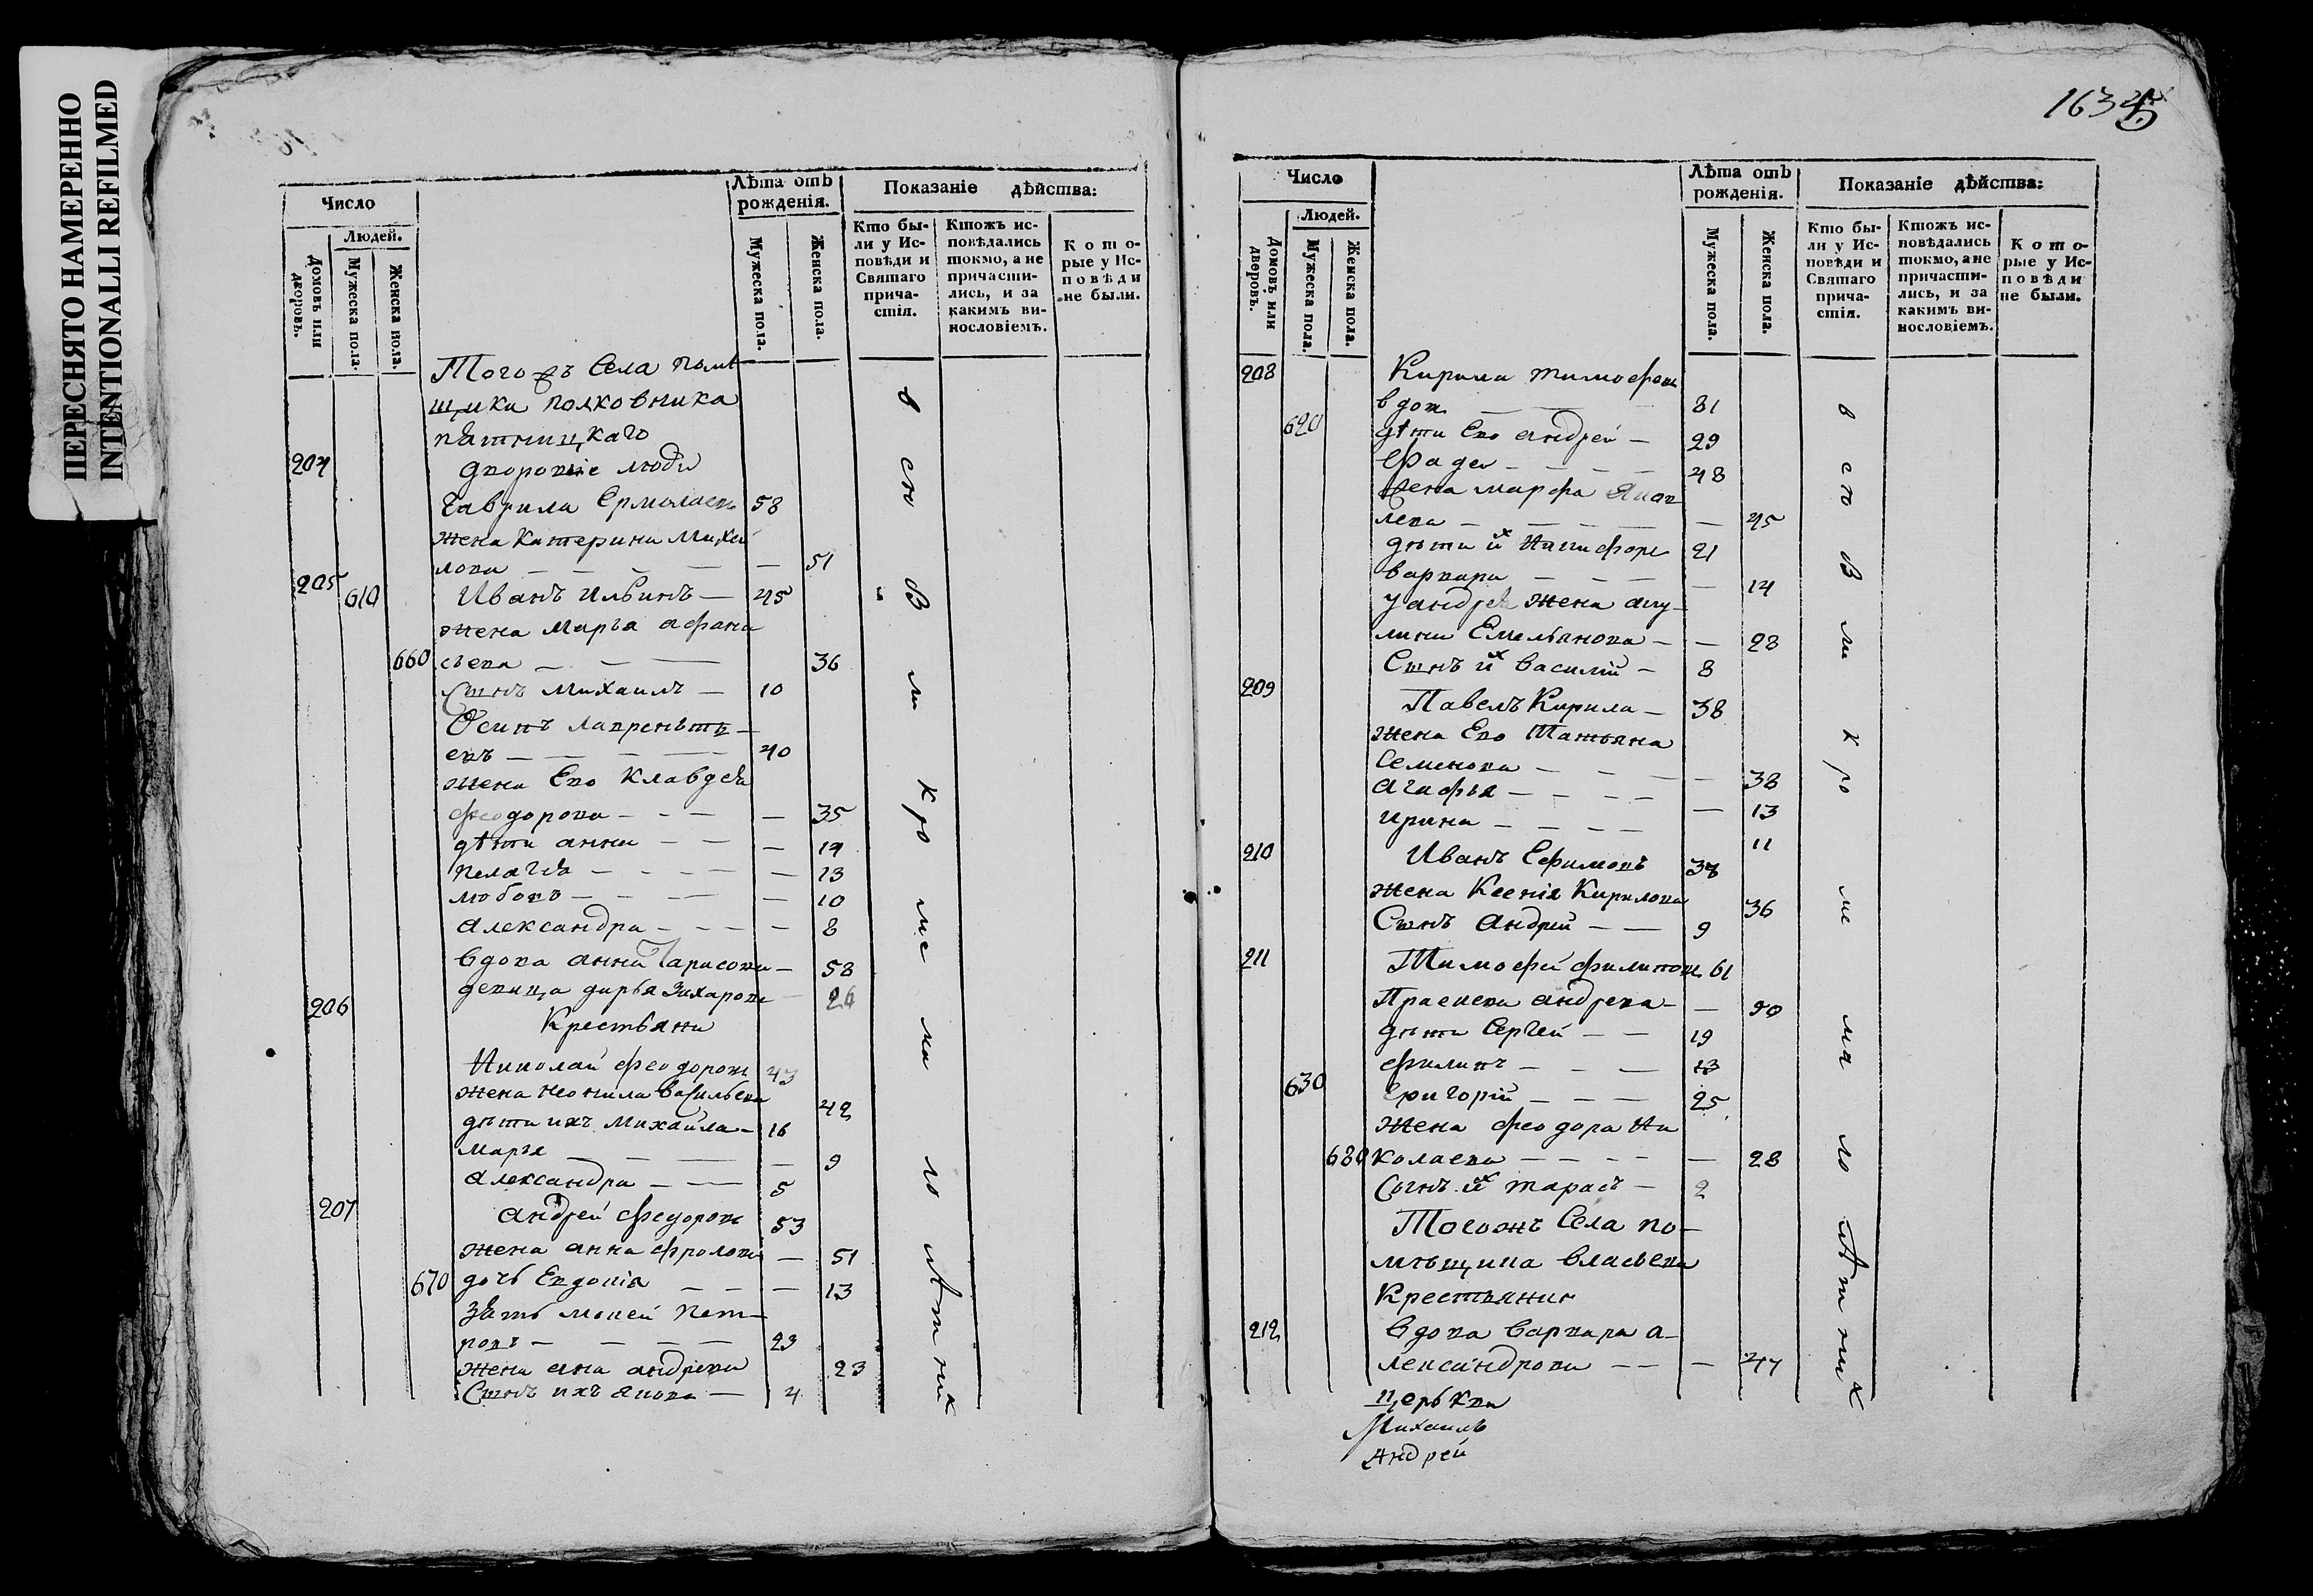 ПЕРЕСНЯТО НАМЕРЕННО
INTENTIONALLI REFILMED
Число
Людей.
Домовъ или дворовъ.
Мужеска пола.
Женска пола.
Лѣта отъ рожденія.
Мужеска пола.
Женска пола.
Показаніе дѣйства:
Кто бы-
ли у Ис-
повѣди и
Святаго
прича-
стія.
Ктожъ ис-
повѣдались
токмо, а не
причасти-
лись, и за
какимъ ви-
нословіемъ.
Кото-
рые у Ис-
повѣди
не были.
Тогожъ Села помѣ
щика полковника
204
дворовые люди
Гаврила Ермолаевъ 58
жена Катерина Михаи
лова — 51
205 610 Иванъ Ильинъ — 45
жена Марѳа афана
660 сьева — 36
Сынъ Михаилъ — 10
Осипъ лаврентъ
евъ — 40
жена Его Клавдѣя
феодорова — 35
дѣти анна — 14
пелагѣя — 13
любовь — 10
александра — 8
вдова анна — 58
девица дарья Захарова 26
206 Крестьяни
Николай феодоровъ 43
жена неонила васильева 42
дѣти ихъ михайла — 16
марья — 9
александра — 5
207 андрей федоровъ 53
жена анна фролова — 51
670 дочь Евдокія — 13
зять мокей пет
ровъ — 23
жена ана андрева 23
Сынъ ихъ яковъ — 4
всѣ
Вы
кро
ме
ма
ло
лѣтних
1634 5
Число
Людей.
Домовъ или дворовъ.
Мужеска пола.
Женска пола.
Лѣта отъ рожденія.
Мужеска пола.
Женска пола.
Показаніе дѣйства:
Кто бы-
ли у Ис-
повѣди и
Святаго
прича-
стія.
Ктожъ ис-
повѣдались
токмо, а не
причасти-
лись, и за
какимъ ви-
нословіемъ.
Кото-
рые у Ис-
повѣди
не были.
208 Кирила тимофеевъ
вдов. — 81
620 дѣти Ево андрей — 29
фадеи — 48
жена марфа Яков
лева — 45
дѣти их Никифоръ 21
варвара — 14
у андрея жена аку
лина Емельянова — 28
Сынъ их василій — 8
209 Павелъ Кирила — 38
жена Ево Татьяна
Семенова — 38
агафья — 13
ирина — 11
210 Иванъ Ефимовъ
жена Ксенія Кирилова 36
Сынъ андрей — 9
211 Тимофей филиповъ 61
Прасковя андрева —
дѣти Сергей — 19
филипъ — 13
630 Григорій — 25
жена феодора Ни
680 колаева — 28
Сынъ их тарасъ — 2
Тогожъ Села по-
мѣщика власьева
Крестьянин
212 вдова варвара а-
лександрова — 47
церькви
Михаилъ
Андрей
всѣ
Вы
кро
ме
ма
ло
лѣтних